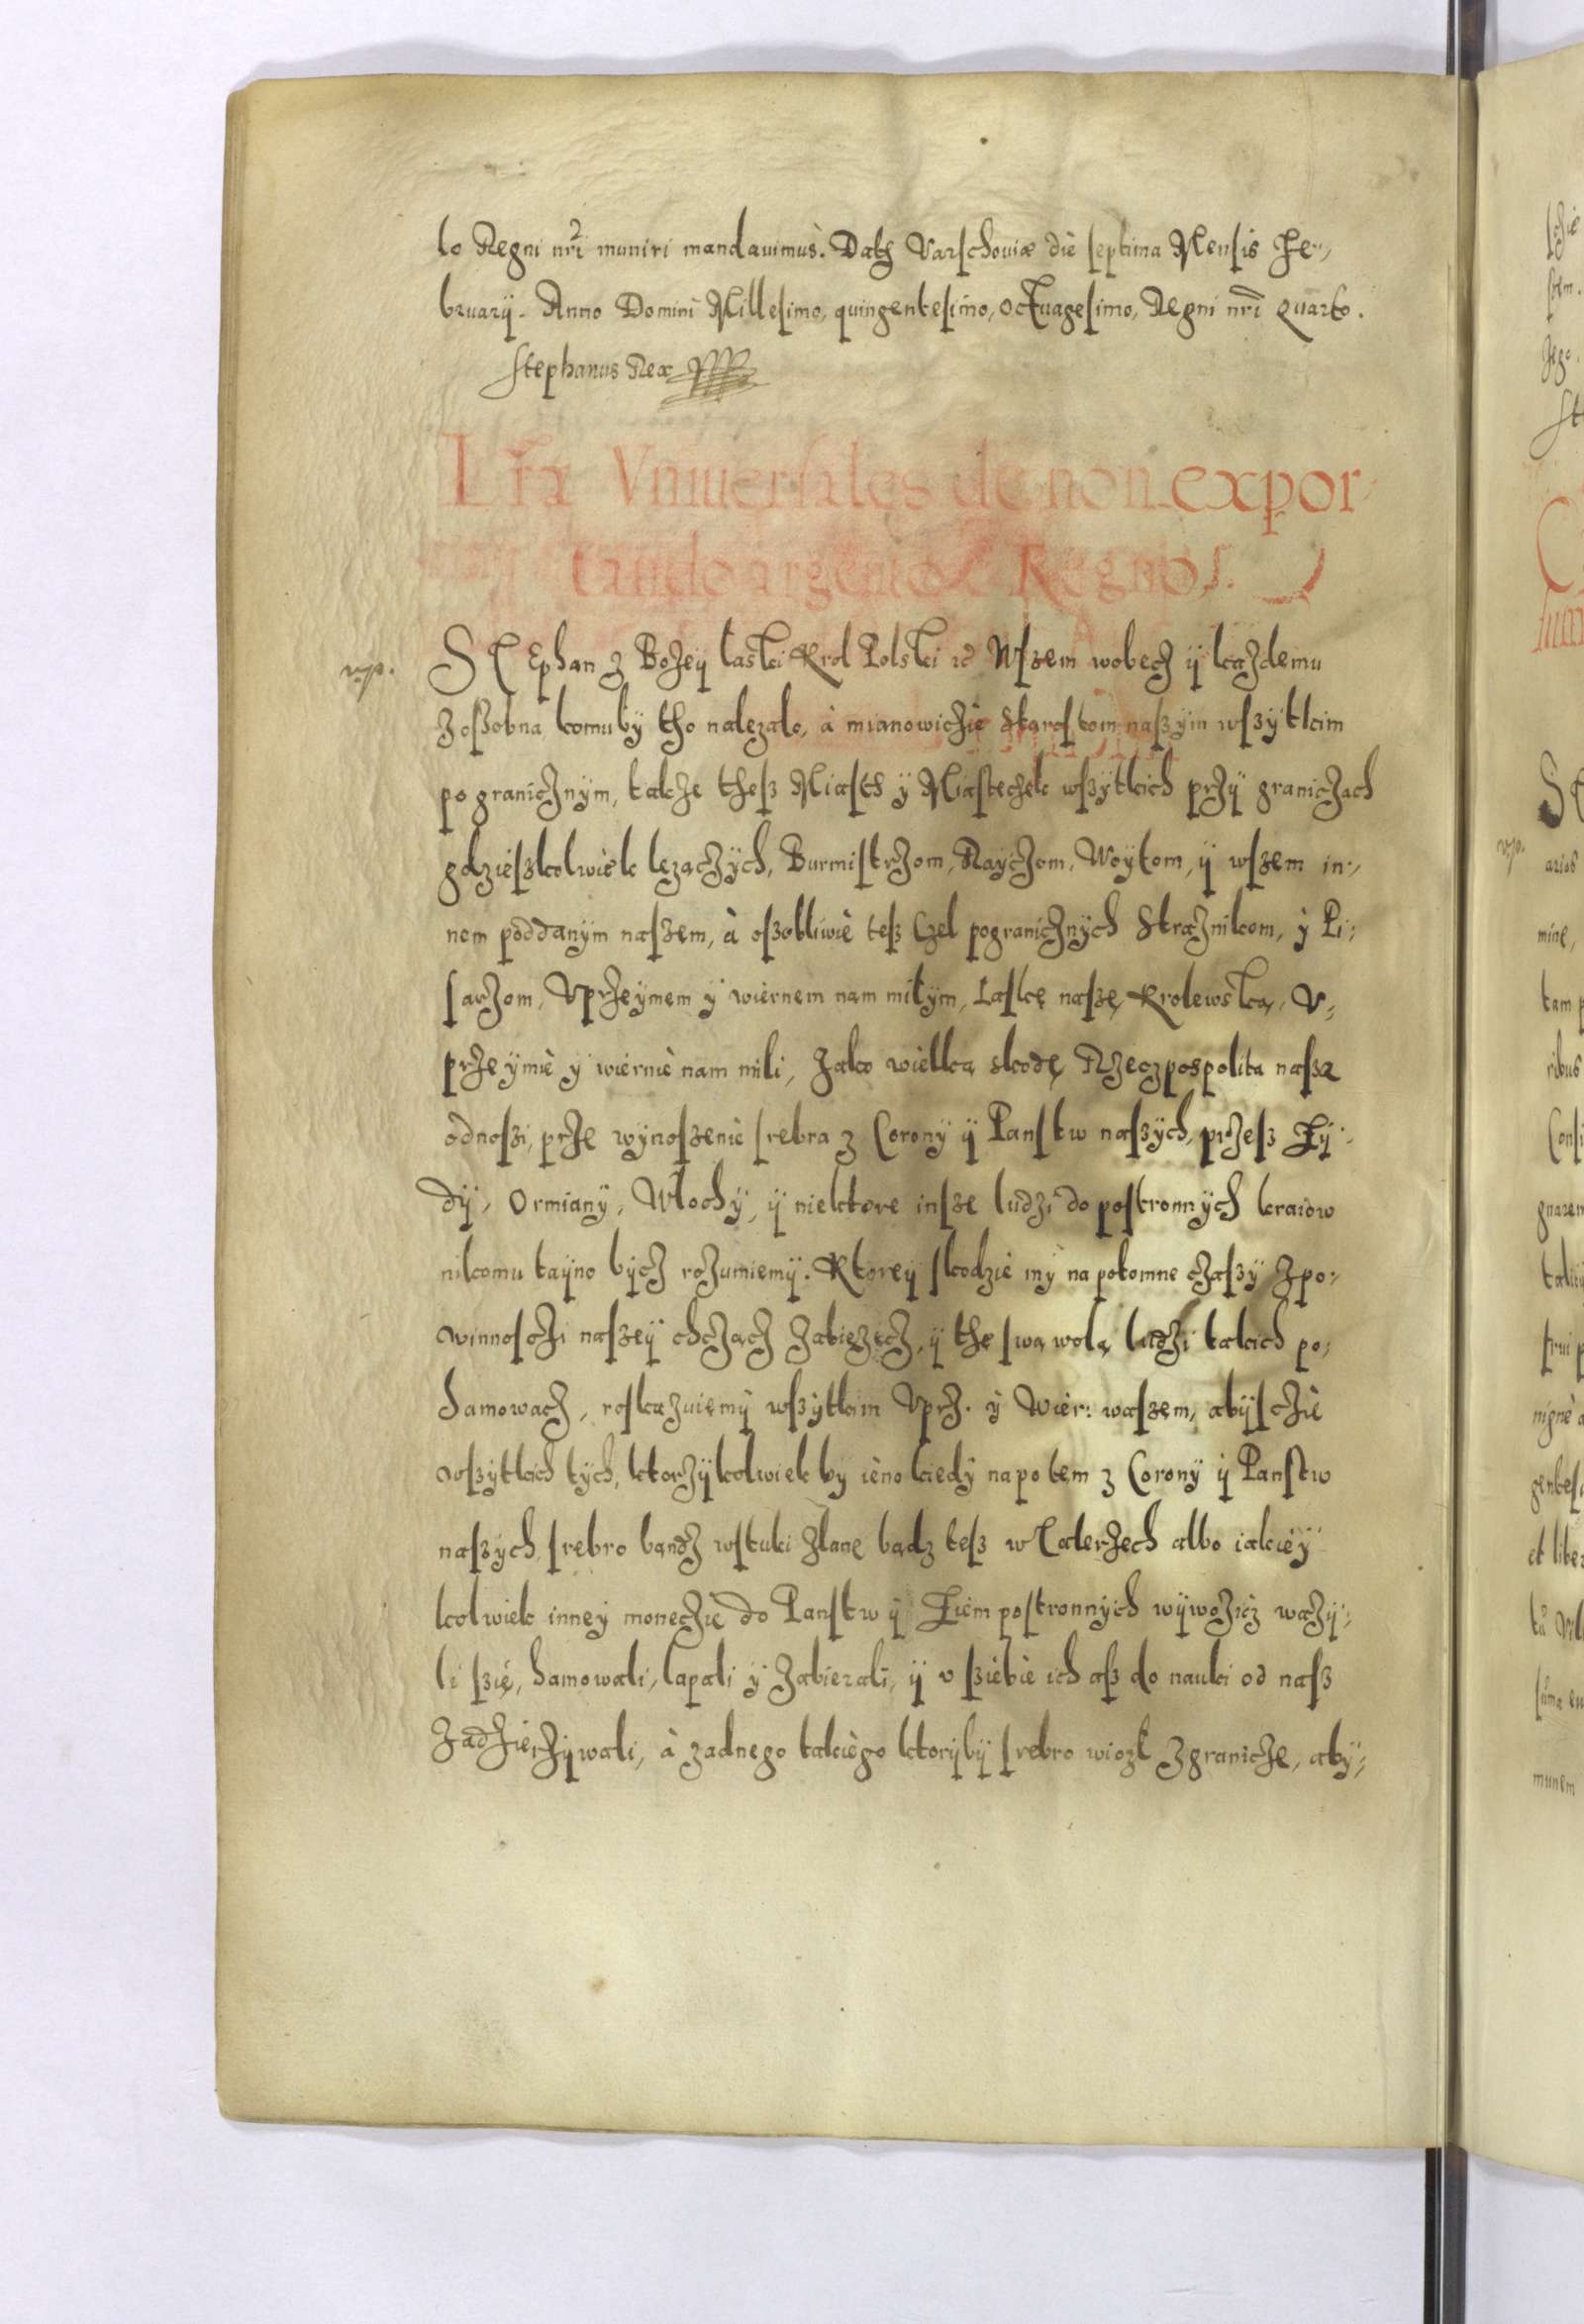 lo Regni nr̃i muniri mandauimus. Dat Varschouiæ die septima Mensis Fe-
bruarÿ. Anno Domini Millesimo, quingentesimo, octuagesimo, Regni nr̃i Quarto.
Stephanus Rex
Lr̃æ Vniuersales de non expor-
tando argento è Regno.
STEphan z Bozeÿ łaski Krol Polski etc Wszem wobecz ÿ kazdemu
zoszobna komubÿ tho nalezalo, à mianowiczie Starostom naszÿm wszÿtkim
pogranicznÿm, takze thesz Miasth ÿ Miastechek wszÿtkich przÿ graniczach
gdzieszkolwiek lezączÿch, Burmistrzom, Rayczom, Woÿtom, ÿ wszem in-
nem poddanÿm naszem, à oszobliwie tesz Czel pogranicznÿch Straznikom, ÿ Pi-
sarzom, Vprzeÿmem ÿ wiernem nam miłÿm, Laskę naszę Krolewską, V-
przeÿmie ÿ wiernie nam mili, Jako wielką skodę Rzeczpospolita nasza
odnoszi, prze wÿnoszenie srebra z Coronÿ ÿ Panstw naszÿch, przesz Zÿ-
dÿ, Ormianÿ, Włochÿ, ÿ niektore insze ludzi do postronnÿch kraiow
nikomu taÿno bÿcz rozumiemÿ. Ktoreÿ skodzie mÿ na potomne czaszÿ z po-
winnosczi naszeÿ chcząch zabiezecz, ÿ thę swą wolą ludzi takich po-
hamowacz, roskazuiemÿ wszÿtkim Vprz. ÿ Wier: waszem, abÿsczie
wszÿtkich tÿch, ktorzÿkolwiek bÿ ieno kiedÿ napotem z Coronÿ ÿ Panstw
naszÿch srebro bandz wstuki zlane bądz tesz w Talerzech albo iakieÿ
kolwiek inneÿ moneczie do Panstw ÿ Ziem postronnÿch wÿwozicz wazÿ-
li szię, hamowali, lapali ÿ zabierali, ÿ v sziebie ich asz do nauki od nasz
zadzierzÿwali, à zadnego takiego ktorÿbÿ srebro wiozł z granicze, abÿ-